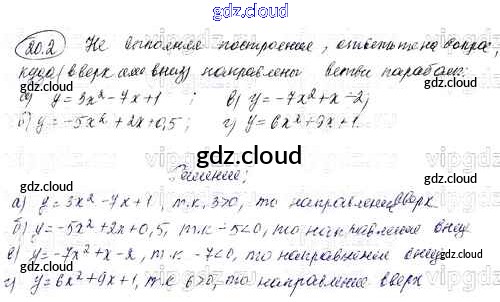 gdz.cloud
20.2 Не выполняя построение, ответьте на вопрос,
куда (вверх или вниз) направлены ветви параболы:
а) y=3x²-7x+1 ; в) y=-7x²+x-2;
б) y=-5x²+2x+0,5; г) y=6x²+9x+1.
gdz.cloud
Решение:
а) y=3x²-7x+1, т.к. 3>0, то направление вверх
б) y=-5x²+2x+0,5, т.к. -5<0, то направление вниз
в) y=-7x²+x-2, т.к. -7<0, то направление вниз
г) y=6x²+9x+1, т.к 6>0, то направление вверх
gdz.cloud